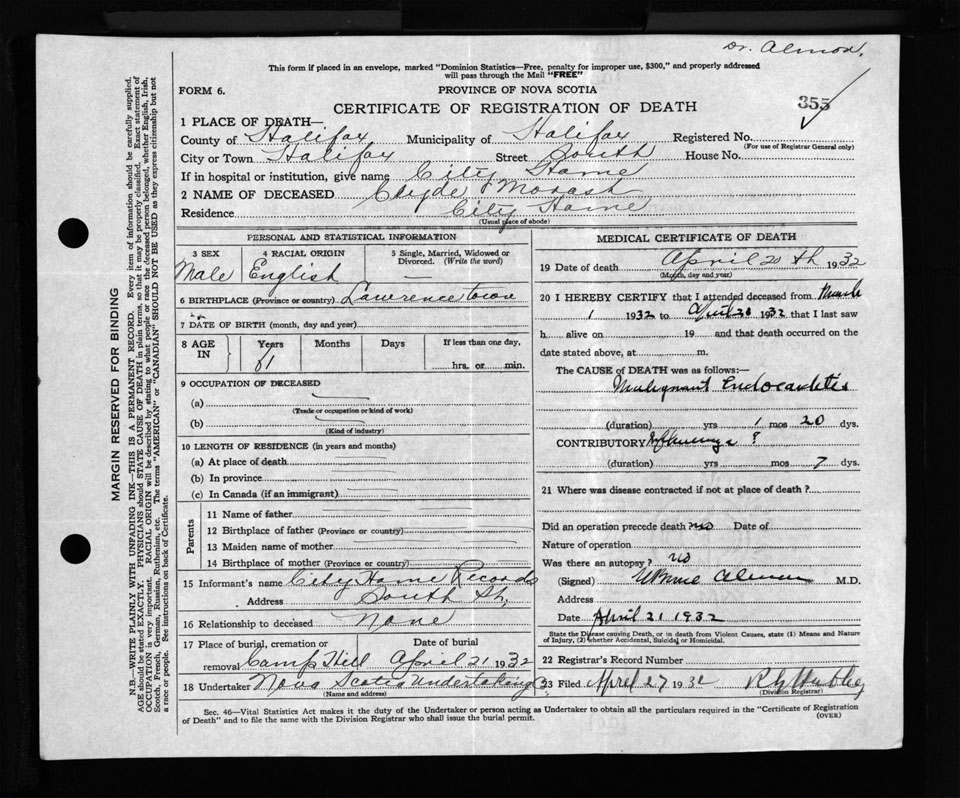 Dr. Almon.
This form if placed in an envelope, marked "Dominion Statistics—Free, penalty for improper use, $300," and properly addressed
will pass through the Mail "FREE"
FORM 6.
PROVINCE OF NOVA SCOTIA
CERTIFICATE OF REGISTRATION OF DEATH
355
1 PLACE OF DEATH—
County of Halifax Municipality of Halifax Registered No.
(For use of Registrar General only)
City or Town Halifax Street South House No.
If in hospital or institution, give name City Home
2 NAME OF DECEASED Clyde Morash
Residence City Home
(Usual place of abode)
PERSONAL AND STATISTICAL INFORMATION
3 SEX
Male
4 RACIAL ORIGIN
English
5 Single, Married, Widowed or
Divorced. (Write the word)
6 BIRTHPLACE (Province or country) Lawrencetown
7 DATE OF BIRTH (month, day and year)
8 AGE
IN
Years
61
Months
Days
If less than one day,
hrs. or min.
9 OCCUPATION OF DECEASED
(a)
(Trade or occupation or kind of work)
(b)
(Kind of industry)
10 LENGTH OF RESIDENCE (in years and months)
(a) At place of death
(b) In province
(c) In Canada (if an immigrant)
Parents
11 Name of father
12 Birthplace of father (Province or country)
13 Maiden name of mother
14 Birthplace of mother (Province or country)
15 Informant's name City Home Records
Address South St.
16 Relationship to deceased None
17 Place of burial, cremation or
removal Camp Hill
Date of burial
April 21 1932
18 Undertaker Nova Scotia Undertaking
(Name and address)
MEDICAL CERTIFICATE OF DEATH
19 Date of death April 20th 1932
(Month, day and year)
20 I HEREBY CERTIFY that I attended deceased from March
1 1932 to April 20 1932 that I last saw
h alive on 19 and that death occurred on the
date stated above, at m.
The CAUSE of DEATH was as follows:—
Malignant Endocarditis
(duration) yrs 1 mos 20 dys.
CONTRIBUTORY Influenza ?
(duration) yrs mos 7 dys.
21 Where was disease contracted if not at place of death ?
Did an operation precede death? no Date of
Nature of operation
Was there an autopsy? no
(Signed) Almon M.D.
Address
Date April 21 1932
State the Disease causing Death, or in death from Violent Causes, state (1) Means and Nature
of Injury, (2) whether Accidental, Suicidal or Homicidal.
22 Registrar's Record Number
23 Filed April 27 1932
(Division Registrar)
Sec. 46—Vital Statistics Act makes it the duty of the Undertaker or person acting as Undertaker to obtain all the particulars required in the "Certificate of Registration
of Death" and to file the same with the Division Registrar who shall issue the burial permit.
(OVER)
MARGIN RESERVED FOR BINDING
N.B.—WRITE PLAINLY WITH UNFADING INK—THIS IS A PERMANENT RECORD. Every item of information should be carefully supplied.
AGE should be stated EXACTLY. PHYSICIANS should STATE CAUSE OF DEATH in plain terms, so that it may be properly classified. Exact statement of
OCCUPATION is very important. RACIAL ORIGIN will be described by stating to what people or race the deceased person belonged, whether English, Irish,
Scotch, French, German, Russian, Ruthenian, etc. The terms "AMERICAN" or "CANADIAN" SHOULD NOT BE USED as they express citizenship but not
a race or people. See instructions on back of Certificate.